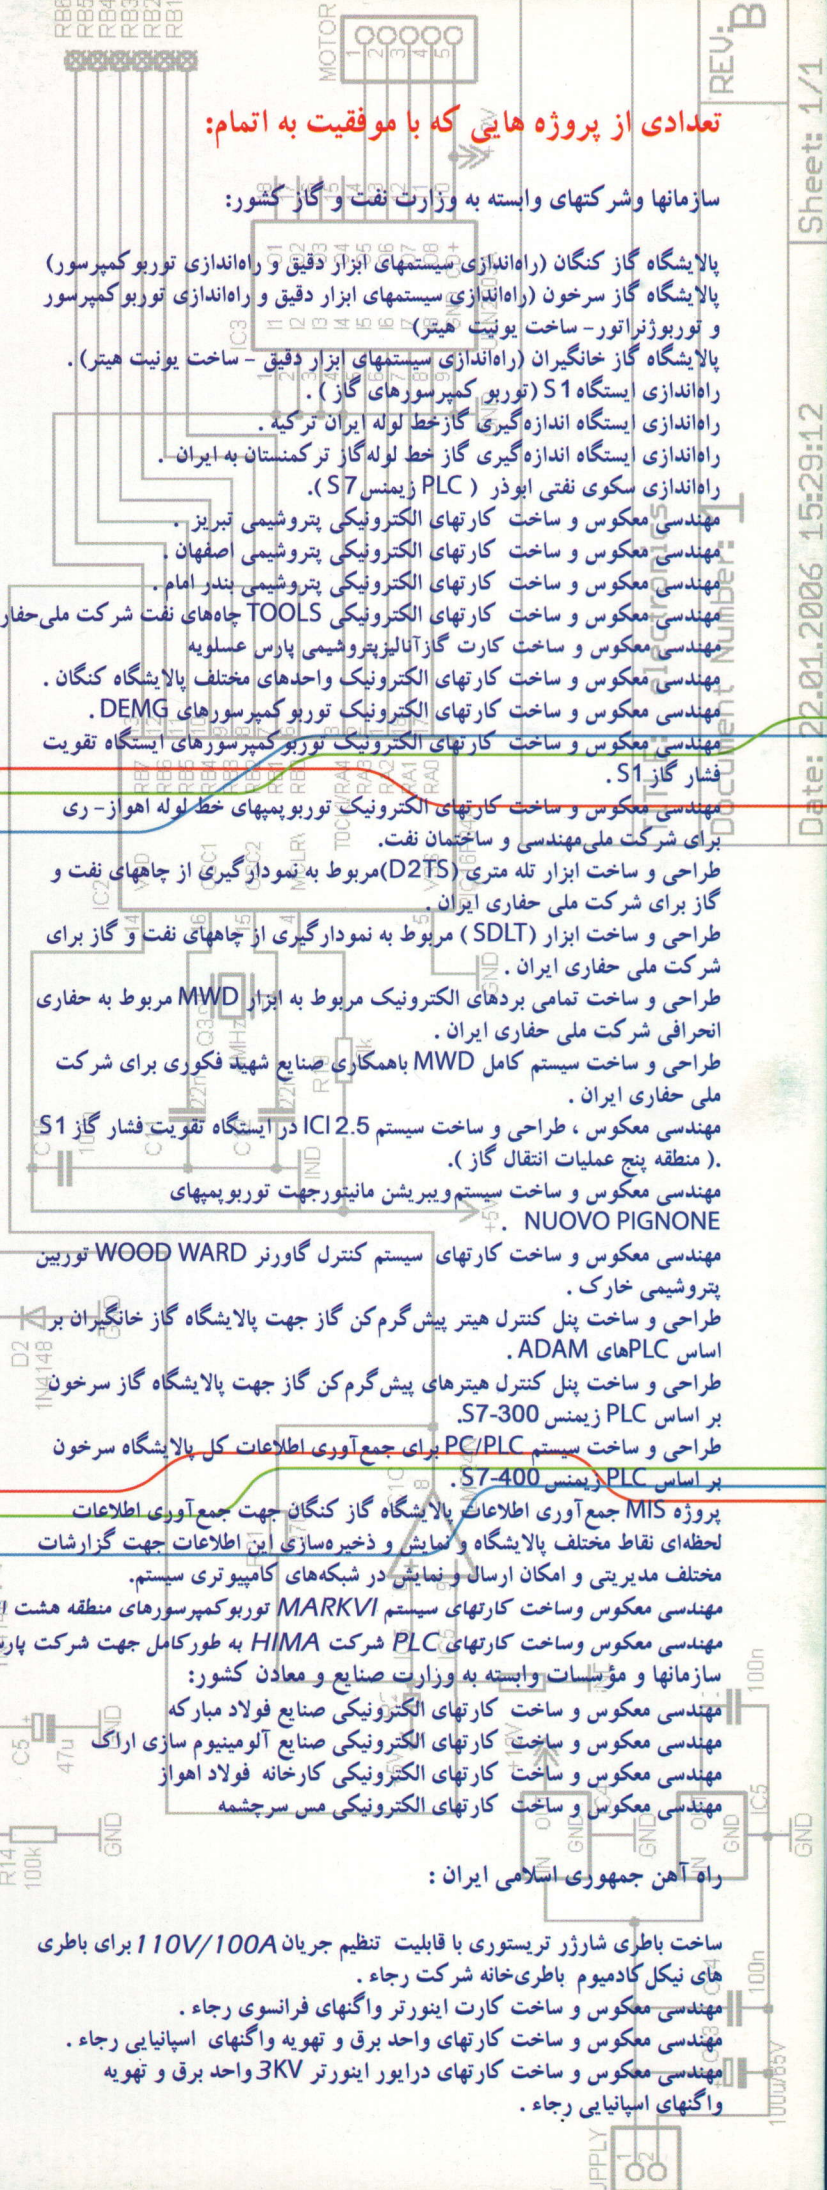 تعدادی از پروژه هایی که با موفقیت به اتمام:
سازمانها وشرکتهای وابسته به وزارت نفت و گاز کشور:
پالایشگاه گاز کنگان (راه‌اندازی سیستمهای ابزار دقیق و راه‌اندازی توربوکمپرسور)
پالایشگاه گاز سرخون (راه‌اندازی سیستمهای ابزار دقیق و راه‌اندازی توربوکمپرسور
و توربوژنراتور- ساخت یونیت هیتر)
پالایشگاه گاز خانگیران (راه‌اندازی سیستمهای ابزار دقیق - ساخت یونیت هیتر) .
راه‌اندازی ایستگاه S1 (توربو کمپرسورهای گاز ) .
راه‌اندازی ایستگاه اندازه‌گیری گازخط لوله ایران ترکیه .
راه‌اندازی ایستگاه اندازه‌گیری گاز خط لوله‌گاز ترکمنستان به ایران .
راه‌اندازی سکوی نفتی ابوذر ( PLC زیمنس S7 ).
مهندسی معکوس و ساخت کارتهای الکترونیکی پتروشیمی تبریز .
مهندسی معکوس و ساخت کارتهای الکترونیکی پتروشیمی اصفهان .
مهندسی معکوس و ساخت کارتهای الکترونیکی پتروشیمی بندر امام .
مهندسی معکوس و ساخت کارتهای الکترونیکی TOOLS چاه‌های نفت شرکت ملی‌حفار
مهندسی معکوس و ساخت کارت گازآنالیزپتروشیمی پارس عسلویه
مهندسی معکوس و ساخت کارتهای الکترونیک واحدهای مختلف پالایشگاه کنگان .
مهندسی معکوس و ساخت کارتهای الکترونیک توربوکمپرسورهای DEMG .
مهندسی معکوس و ساخت کارتهای الکترونیک توربوکمپرسورهای ایستگاه تقویت
فشار گاز S1 .
مهندسی معکوس و ساخت کارتهای الکترونیک توربوپمپهای خط لوله اهواز- ری
برای شرکت ملی‌مهندسی و ساختمان نفت.
طراحی و ساخت ابزار تله متری (D2TS)مربوط به نمودارگیری از چاههای نفت و
گاز برای شرکت ملی حفاری ایران .
طراحی و ساخت ابزار (SDLT ) مربوط به نمودارگیری از چاههای نفت و گاز برای
شرکت ملی حفاری ایران .
طراحی و ساخت تمامی بردهای الکترونیک مربوط به ابزار MWD مربوط به حفاری
انحرافی شرکت ملی حفاری ایران .
طراحی و ساخت سیستم کامل MWD باهمکاری صنایع شهید فکوری برای شرکت
ملی حفاری ایران .
مهندسی معکوس ، طراحی و ساخت سیستم ICI 2.5 در ایستگاه تقویت فشار گاز S1
.( منطقه پنج عملیات انتقال گاز ).
مهندسی معکوس و ساخت سیستم‌ویبریشن مانیتورجهت توربوپمپهای
NUOVO PIGNONE .
مهندسی معکوس و ساخت کارتهای سیستم کنترل گاورنر WOOD WARD توربین
پتروشیمی خارک .
طراحی و ساخت پنل کنترل هیتر پیش‌گرم‌کن گاز جهت پالایشگاه گاز خانگیران بر
اساس PLCهای ADAM .
طراحی و ساخت پنل کنترل هیترهای پیش‌گرم‌کن گاز جهت پالایشگاه گاز سرخون
بر اساس PLC زیمنس S7-300.
طراحی و ساخت سیستم PC/PLC برای جمع‌آوری اطلاعات کل پالایشگاه سرخون
بر اساس PLC زیمنس S7-400 .
پروژه MIS جمع‌آوری اطلاعات پالایشگاه گاز کنگان جهت جمع‌آوری اطلاعات
لحظه‌ای نقاط مختلف پالایشگاه و نمایش و ذخیره‌سازی این اطلاعات جهت گزارشات
مختلف مدیریتی و امکان ارسال و نمایش در شبکه‌های کامپیوتری سیستم.
مهندسی معکوس وساخت کارتهای سیستم MARKVI توربوکمپرسورهای منطقه هشت
مهندسی معکوس وساخت کارتهای PLC شرکت HIMA به طورکامل جهت شرکت
سازمانها و مؤسسات وابسته به وزارت صنایع و معادن کشور:
مهندسی معکوس و ساخت کارتهای الکترونیکی صنایع فولاد مبارکه
مهندسی معکوس و ساخت کارتهای الکترونیکی صنایع آلومینیوم سازی اراک
مهندسی معکوس و ساخت کارتهای الکترونیکی کارخانه فولاد اهواز
مهندسی معکوس و ساخت کارتهای الکترونیکی مس سرچشمه
راه آهن جمهوری اسلامی ایران :
ساخت باطری شارژر تریستوری با قابلیت تنظیم جریان 110V/100A برای باطری
های نیکل‌کادمیوم باطری‌خانه شرکت رجاء .
مهندسی معکوس و ساخت کارت اینورتر واگنهای فرانسوی رجاء .
مهندسی معکوس و ساخت کارتهای واحد برق و تهویه واگنهای اسپانیایی رجاء .
مهندسی معکوس و ساخت کارتهای درایور اینورتر 3KV واحد برق و تهویه
واگنهای اسپانیایی رجاء .
MOTOR
REV: B
Sheet: 1/1
Date: 22.01.2006 15:29:12
Document Number: 1